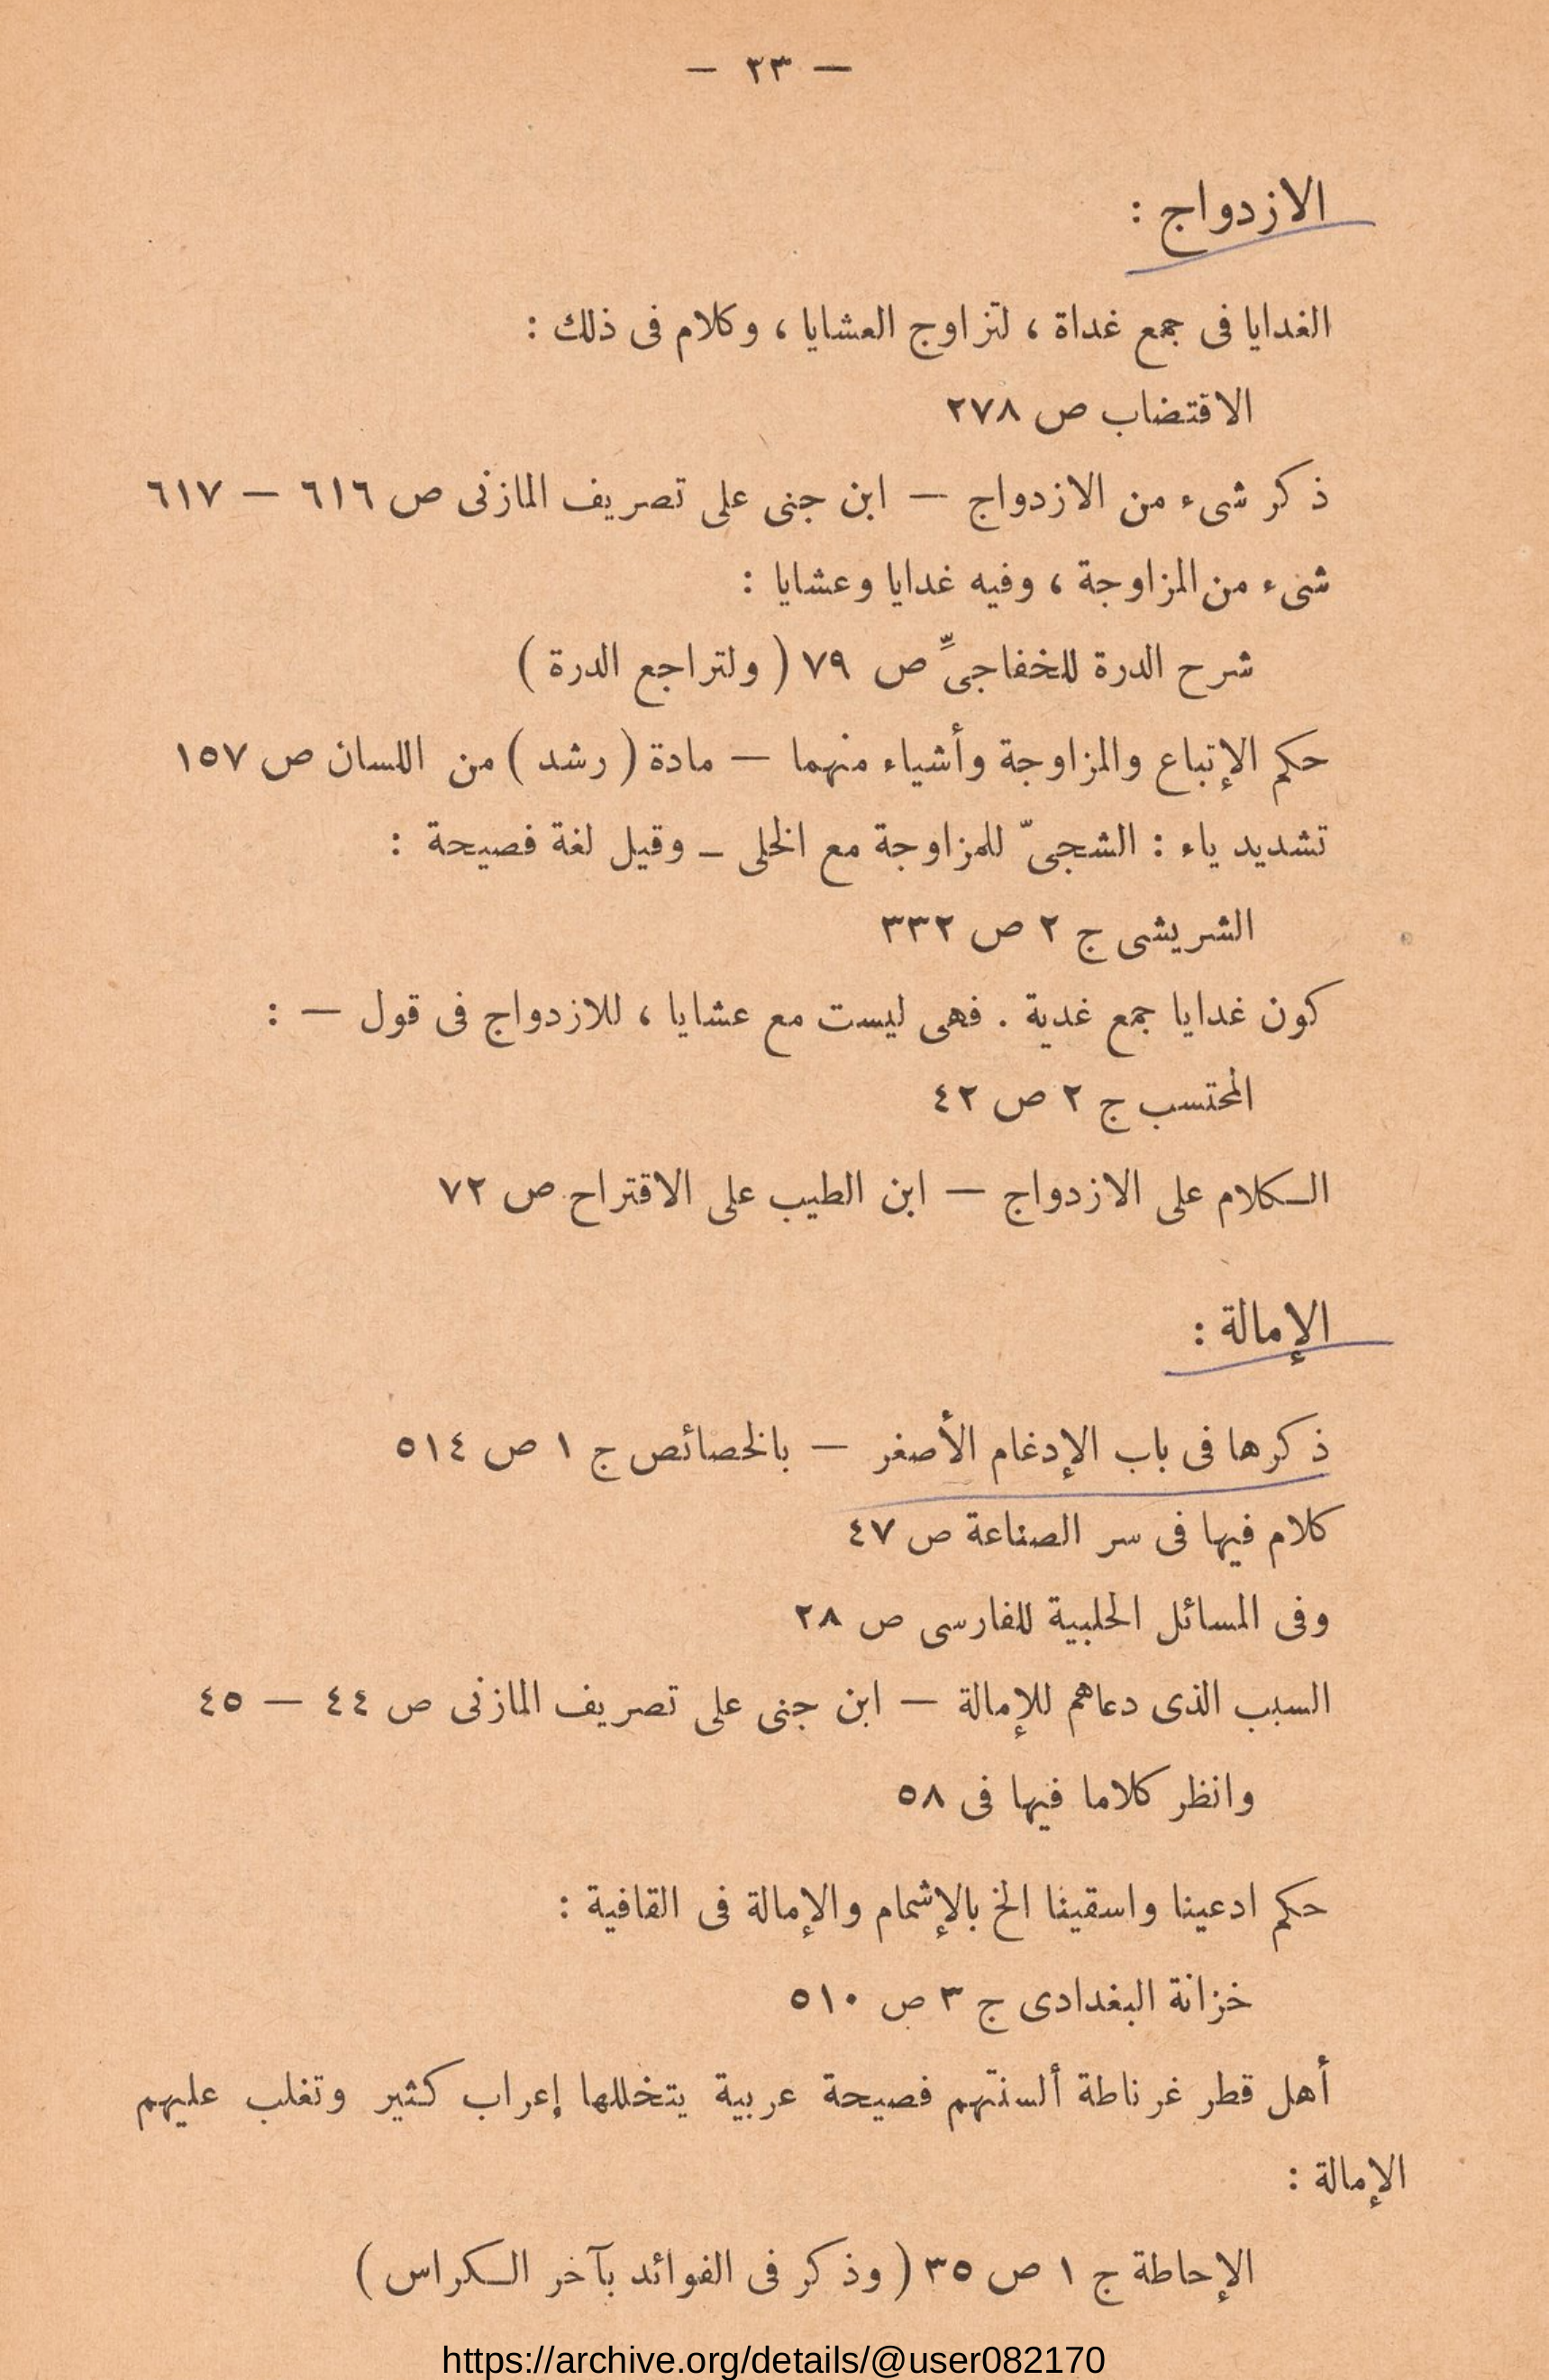 — ٢٣ —
الازدواج :
الغدايا فى جمع غداة ، لتزاوج العشايا ، وكلام فى ذلك :
الاقتضاب ص ٢٧٨
ذكر شىء من الازدواج — ابن جنى على تصريف المازنى ص ٦١٦ — ٦١٧
شىء من المزاوجة ، وفيه غدايا وعشايا :
شرح الدرة للخفاجىِّ ص ٧٩ ( ولتراجع الدرة )
حكم الإتباع والمزاوجة وأشياء منهما — مادة ( رشد ) من اللسان ص ١٥٧
تشديد ياء : الشجىّ للمزاوجة مع الخلى – وقيل لغة فصيحة :
الشريشى ج ٢ ص ٣٣٢
كون غدايا جمع غدية . فهى ليست مع عشايا ، للازدواج فى قول — :
المحتسب ج ٢ ص ٤٢
الكلام على الازدواج — ابن الطيب على الاقتراح ص ٧٢
الإمالة :
ذكرها فى باب الإدغام الأصغر — بالخصائص ج ١ ص ٥١٤
كلام فيها فى سر الصناعة ص ٤٧
وفى المسائل الحلبية للفارسى ص ٢٨
السبب الذى دعاهم للإمالة — ابن جنى على تصريف المازنى ص ٤٤ — ٤٥
وانظر كلاما فيها فى ٥٨
حكم ادعينا واسقينا الخ بالإشمام والإمالة فى القافية :
خزانة البغدادى ج ٣ ص ٥١٠
أهل قطر غرناطة ألسنتهم فصيحة عربية يتخللها إعراب كثير وتغلب عليهم
الإمالة :
الإحاطة ج ١ ص ٣٥ ( وذكر فى الفوائد بآخر الكراس )
https://archive.org/details/@user082170